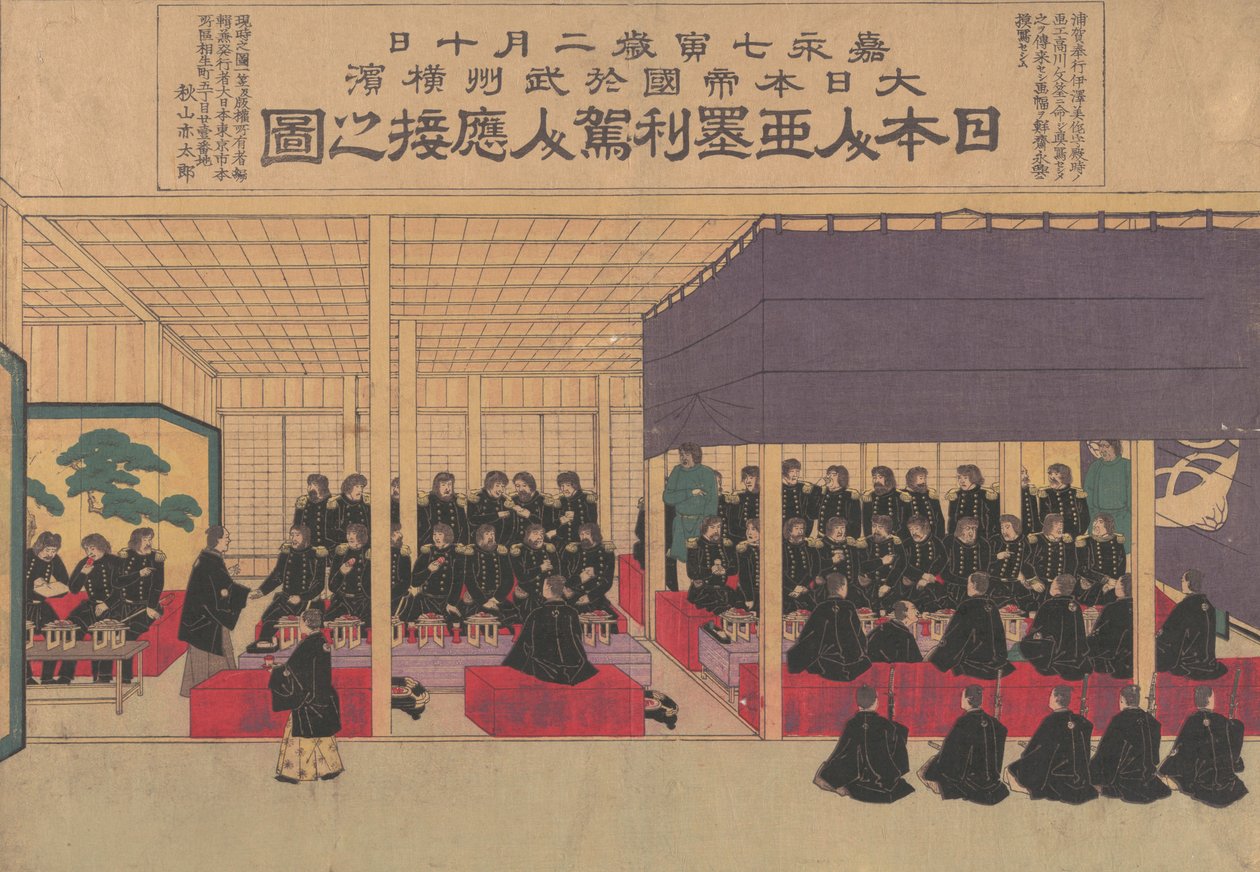 浦賀奉行伊澤美作守殿時ノ
画工高川文筌ニ命シ真寫セシメ
之ヲ傳来セシ画幅ヲ鮮齋永興ニ
摸寫セシム
嘉永七寅歳二月十日
大日本帝國於武州横濱
日本人亜墨利駕人應接之圖
現時之圖一版權所有者編
輯兼発行者大日本東京市本
所區相生町五丁目廿壹番地
秋山亦太郎